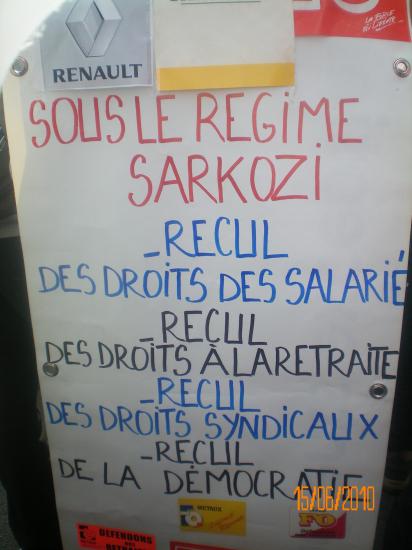 RENAULT
SOUS LE REGIME
SARKOZI
_RECUL
DES DROITS DES SALARIÉ
_RECUL
DES DROITS À LA RETRAITE
_RECUL
DES DROITS SYNDICAUX
_RECUL
DE LA DÉMOCRATIE
15/06/2010
METAUX
FO
DEFENDONS